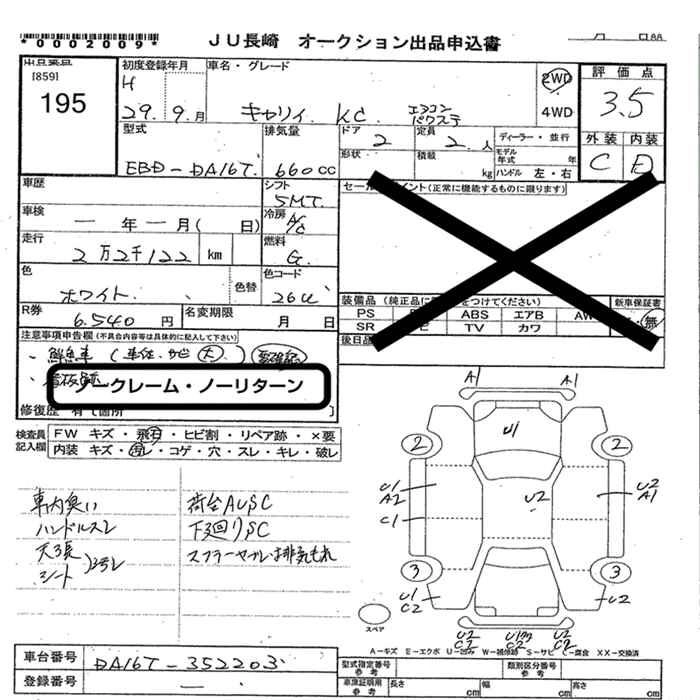 *0002009*
ＪＵ長崎　オークション出品申込書
[859]
195
初度登録年月
H
29年9月
車名・グレード
キャリイ KC エアコン パワステ
2WD
4WD
評価点
3.5
外装 内装
C D
型式
EBD-DA16T
排気量
660cc
ドア
2
定員
2人
ディーラー・並行
形状
積載
kg
モデル年式
年
ハンドル 左・右
車歴
シフト
5MT
セールスポイント(正常に機能するものに限ります)
車検
一年一月(　日)
冷房
A/C
走行
2万2千122
km
燃料
G
色
ホワイト
色替
色コード
26U
装備品(純正品に○をつけてください)
新車保証書
PS ABS エアB AW
SR TV カワ
・無
R券
6.540円
名変期限
月　日
後日品
注意事項申告欄(不具合内容等は具体的に記入して下さい)
・鮮魚車(車体、サビ大)
ノークレーム・ノーリターン
修復歴 有[箇所　]
検査員記入欄
FW キズ・飛石・ヒビ割・リペア跡・×要
内装 キズ・汚レ・コゲ・穴・スレ・キレ・破レ
車内臭い
ハンドルスレ
天張
シート
汚レ
荷台AUSC
下廻りSC
マフラーサブレ、排気もれ
A1 A1
U1
2 2
U1
A2
C1
U2
U2
A1
3 3
U1
C2
U2
スペア
U2
C2
U2
C2
A－キズ E－エクボ U－凹み W－補修跡 S－サビ C－腐食 XX－交換済
車台番号
DA16T-352203
登録番号
一
型式指定番号
参考
類別区分番号
参考
車庫証明用
参考
長さ cm
幅 cm
高さ cm